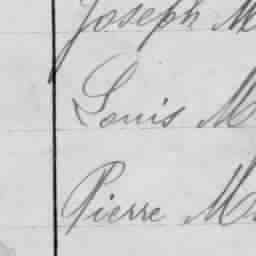 Joseph M
Louis M
Pierre M